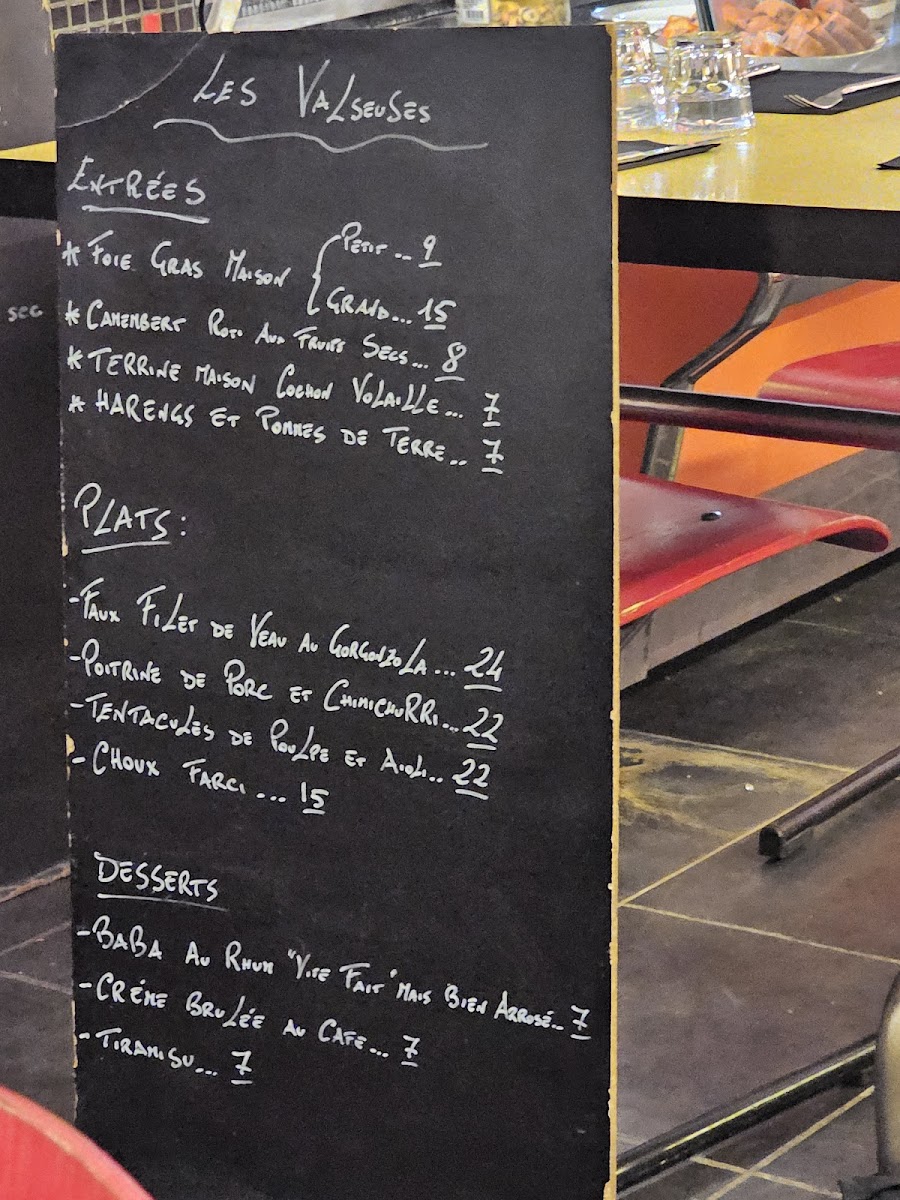 LES VALSEUSES
ENTRÉES
* FOIE GRAS MAISON { PETIT ... 9
GRAND... 15
* CAMEMBERT ROTI AUX FRUITS SECS... 8
* TERRINE MAISON COCHON VOLAILLE... 7
* HARENGS ET POMMES DE TERRE... 7
PLATS:
- FAUX FILET DE VEAU AU GORGONZOLA ... 24
- POITRINE DE PORC ET CHIMICHURRI... 22
- TENTACULES DE POULPE ET AIOLI... 22
- CHOUX FARCI ... 15
DESSERTS
- BABA AU RHUM "VITE FAIT" MAIS BIEN ARROSÉ.. 7
- CRÉME BRULÉE AU CAFE... 7
- TIRAMISU... 7
SEC